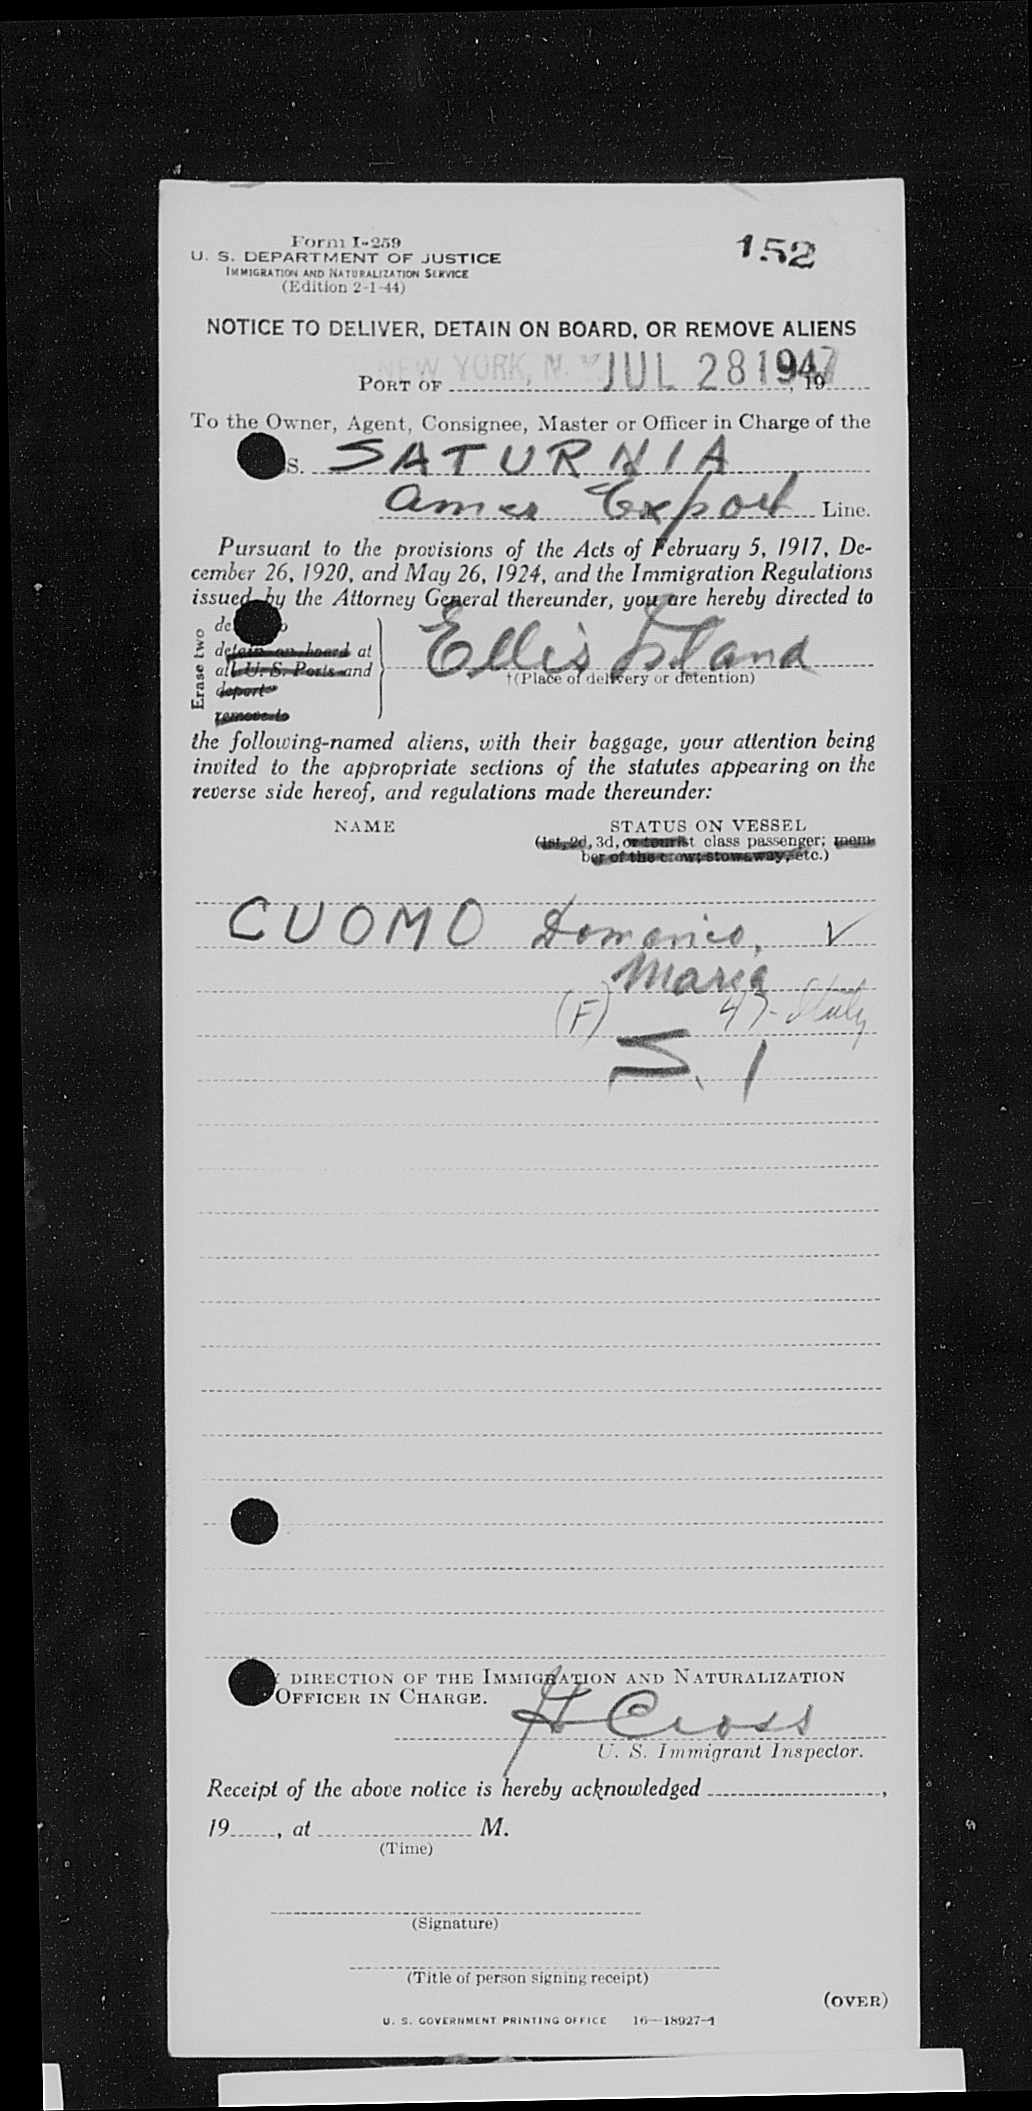 Form I-259
U. S. DEPARTMENT OF JUSTICE
IMMIGRATION AND NATURALIZATION SERVICE
(Edition 2-1-44)
152
NOTICE TO DELIVER, DETAIN ON BOARD, OR REMOVE ALIENS
PORT OF NEW YORK, N. Y. JUL 28 1947, 19
To the Owner, Agent, Consignee, Master or Officer in Charge of the
S. SATURNIA
Amer Export Line.
Pursuant to the provisions of the Acts of February 5, 1917, De-
cember 26, 1920, and May 26, 1924, and the Immigration Regulations
issued by the Attorney General thereunder, you are hereby directed to
Erase two
de o
detain on board at
all U. S. Ports and
deport
remove to
Ellis Island
†(Place of delivery or detention)
the following-named aliens, with their baggage, your attention being
invited to the appropriate sections of the statutes appearing on the
reverse side hereof, and regulations made thereunder:
NAME STATUS ON VESSEL
(1st, 2d, 3d, or tourist class passenger; mem-
ber of the crew; stowaway, etc.)
CUOMO Domenico, ✓
Maria
(F) 47- Italy
S. 1
DIRECTION OF THE IMMIGRATION AND NATURALIZATION
OFFICER IN CHARGE.
H Cross
U. S. Immigrant Inspector.
Receipt of the above notice is hereby acknowledged ,
19 , at M.
(Time)
(Signature)
(Title of person signing receipt)
(OVER)
U. S. GOVERNMENT PRINTING OFFICE 16—18927-1